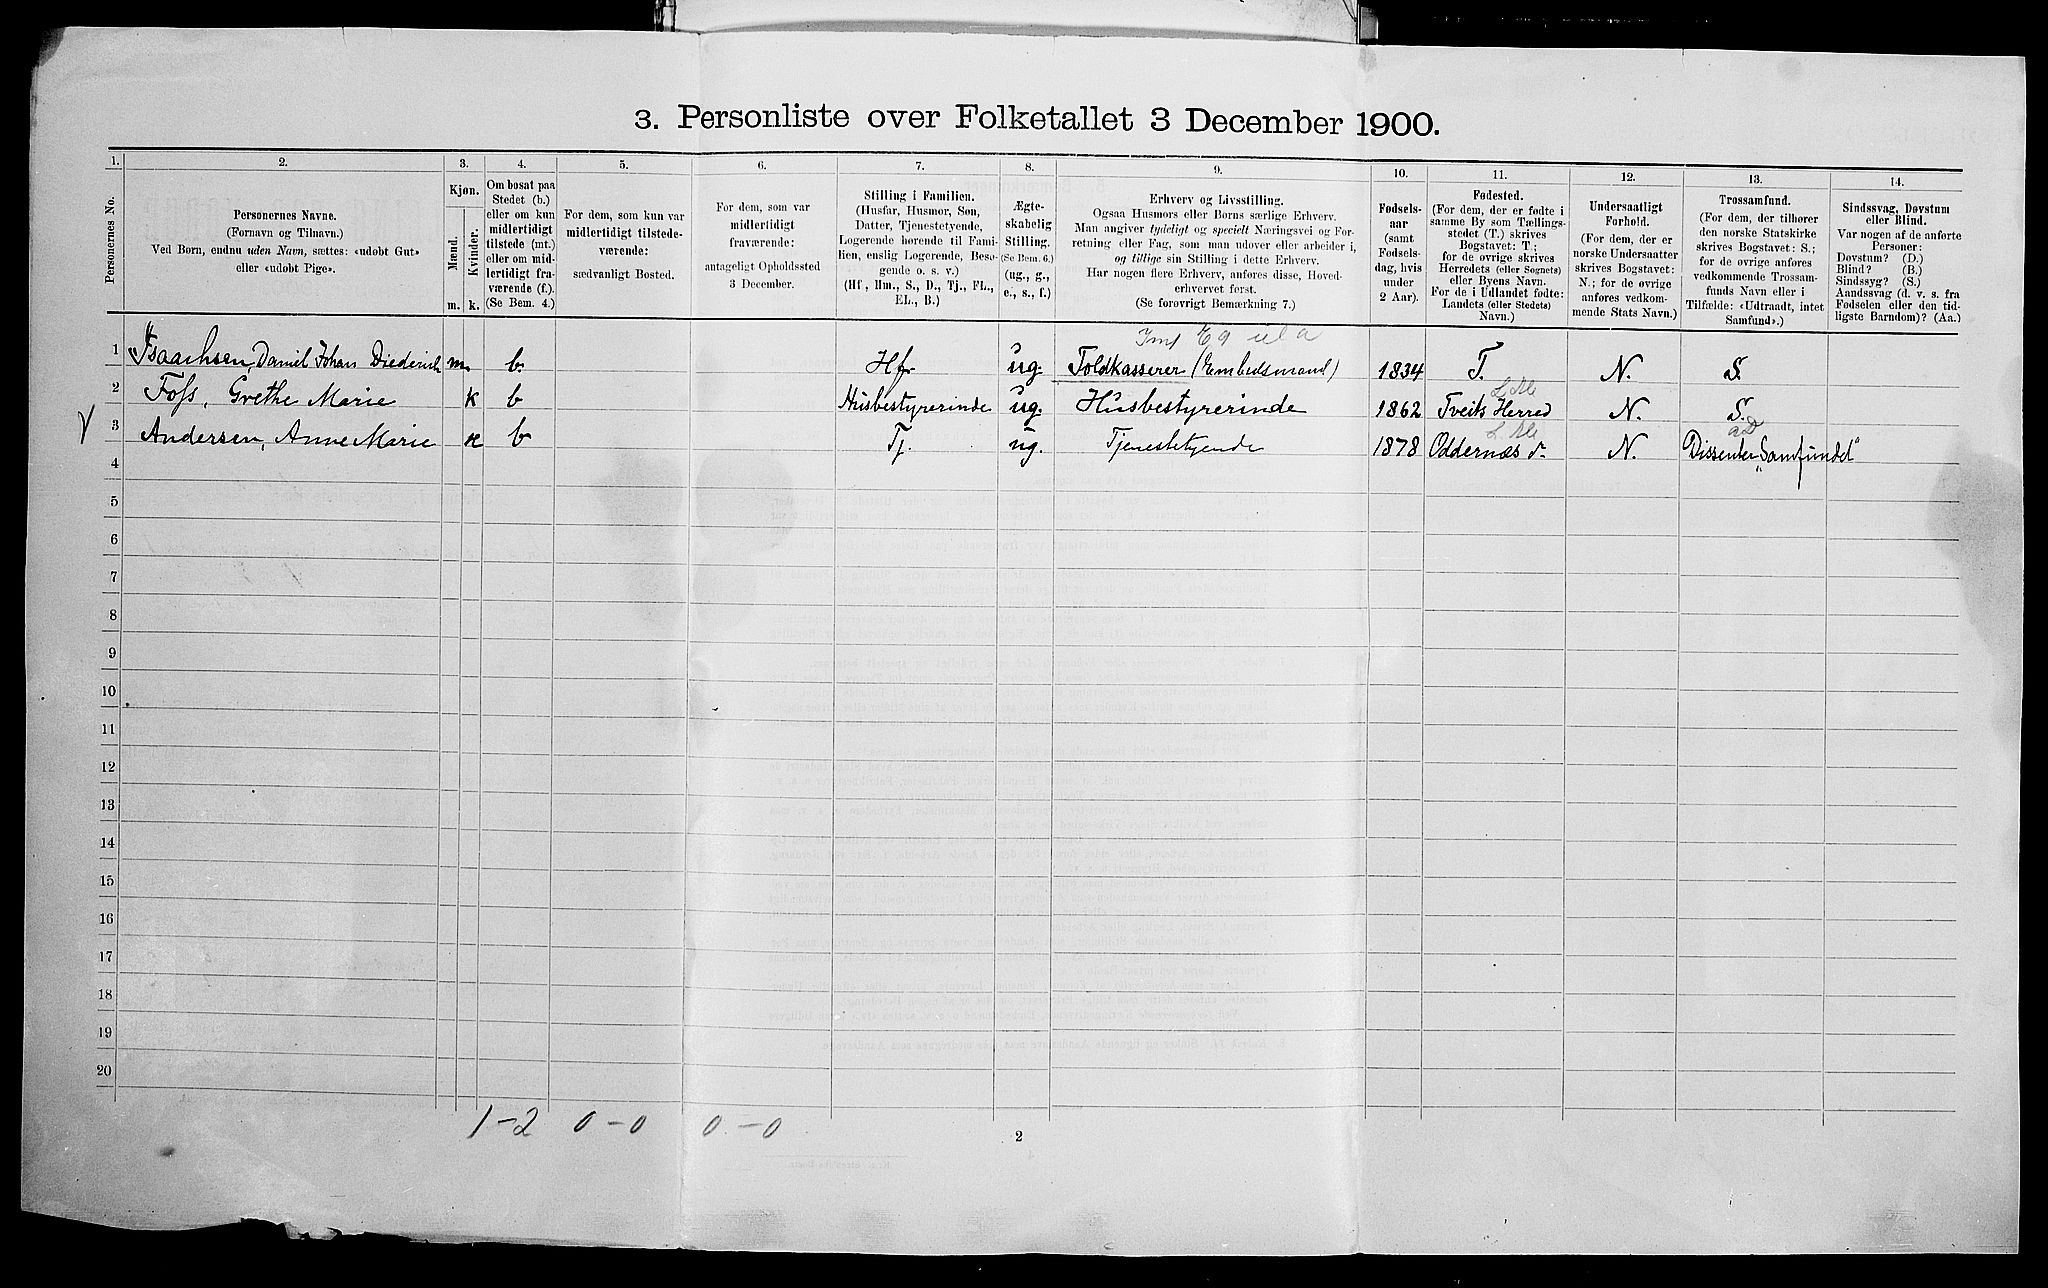 3. Personliste over Folketallet 3 December 1900.
1. 2. 3. 4. 5. 6. 7. 8. 9. 10. 11. 12. 13. 14.
Personernes No.
Personernes Navne.
(Fornavn og Tilnavn.)
Ved Børn, endnu uden Navn, sættes: «udøbt Gut»
eller «udøbt Pige».
Kjøn.
Mænd.
Kvinder.
m. k.
Om bosat paa
Stedet (b.)
eller om kun
midlertidigt
tilstede (mt.)
eller om mid-
lertidigt fra-
værende (f.).
(Se Bem. 4.)
For dem, som kun var
midlertidigt tilstede-
værende:
sædvanligt Bosted.
For dem, som var
midlertidigt
fraværende:
antageligt Opholdssted
3 December.
Stilling i Familien.
(Husfar, Husmor, Søn,
Datter, Tjenestetyende,
Logerende hørende til Fami-
lien, enslig Logerende, Besø-
gende o. s. v.)
(Hf, Hm., S., D., Tj., FL.,
EL., B.)
Ægte-
skabelig
Stilling.
(Se Bem. 6.)
(ug., g.,
e., s., f.)
Erhverv og Livsstilling.
Ogsaa Husmors eller Børns særlige Erhverv.
Man angiver tydeligt og specielt Næringsvei og For-
retning eller Fag, som man udover eller arbeider i,
og tillige sin Stilling i dette Erhverv.
Har nogen flere Erhverv, anføres disse, Hoved-
erhvervet først.
(Se forøvrigt Bemærkning 7.)
Fødsels-
aar
(samt
Fødsels-
dag, hvis
under
2 Aar).
Fødested.
(For dem, der er fødte i
samme By som Tællings-
stedet (T.) skrives
Bogstavet: T.;
for de øvrige skrives
Herredets (eller Sognets)
eller Byens Navn.
For de i Udlandet fødte:
Landets (eller Stedets)
Navn.)
Undersaatligt
Forhold.
(For dem, der er
norske Undersaatter
skrives Bogstavet:
N.; for de øvrige
anføres vedkom-
mende Stats Navn.)
Trossamfund.
(For dem, der tilhører
den norske Statskirke
skrives Bogstavet: S.;
for de øvrige anføres
vedkommende Trossam-
funds Navn eller i
Tilfælde: «Udtraadt, intet
Samfund».)
Sindssvag, Døvstum
eller Blind.
Var nogen af de anførte
Personer:
Døvstum? (D.)
Blind? (B.)
Sindssyg? (S.)
Aandssvag (d. v. s. fra
Fødselen eller den tid-
ligste Barndom)? (Aa.)
1 Isaachsen, Daniel Johan Diederich m. b. Hf. ug. Toldkasserer (Embedsmand) 1834 T. N. S.
2 Foss, Grethe Marie k b Husbestyrerinde ug. Husbestyrerinde 1862 Tveits Herred N. S.
3 Andersen, Anne Marie k b Tj. ug. Tjenestetyende 1878 Oddernæs d. N. Dissenter „Samfundet“
4
5
6
7
8
9
10
11
12
13
14
15
16
17
18
19
20
1-2 0-0 0-0
2